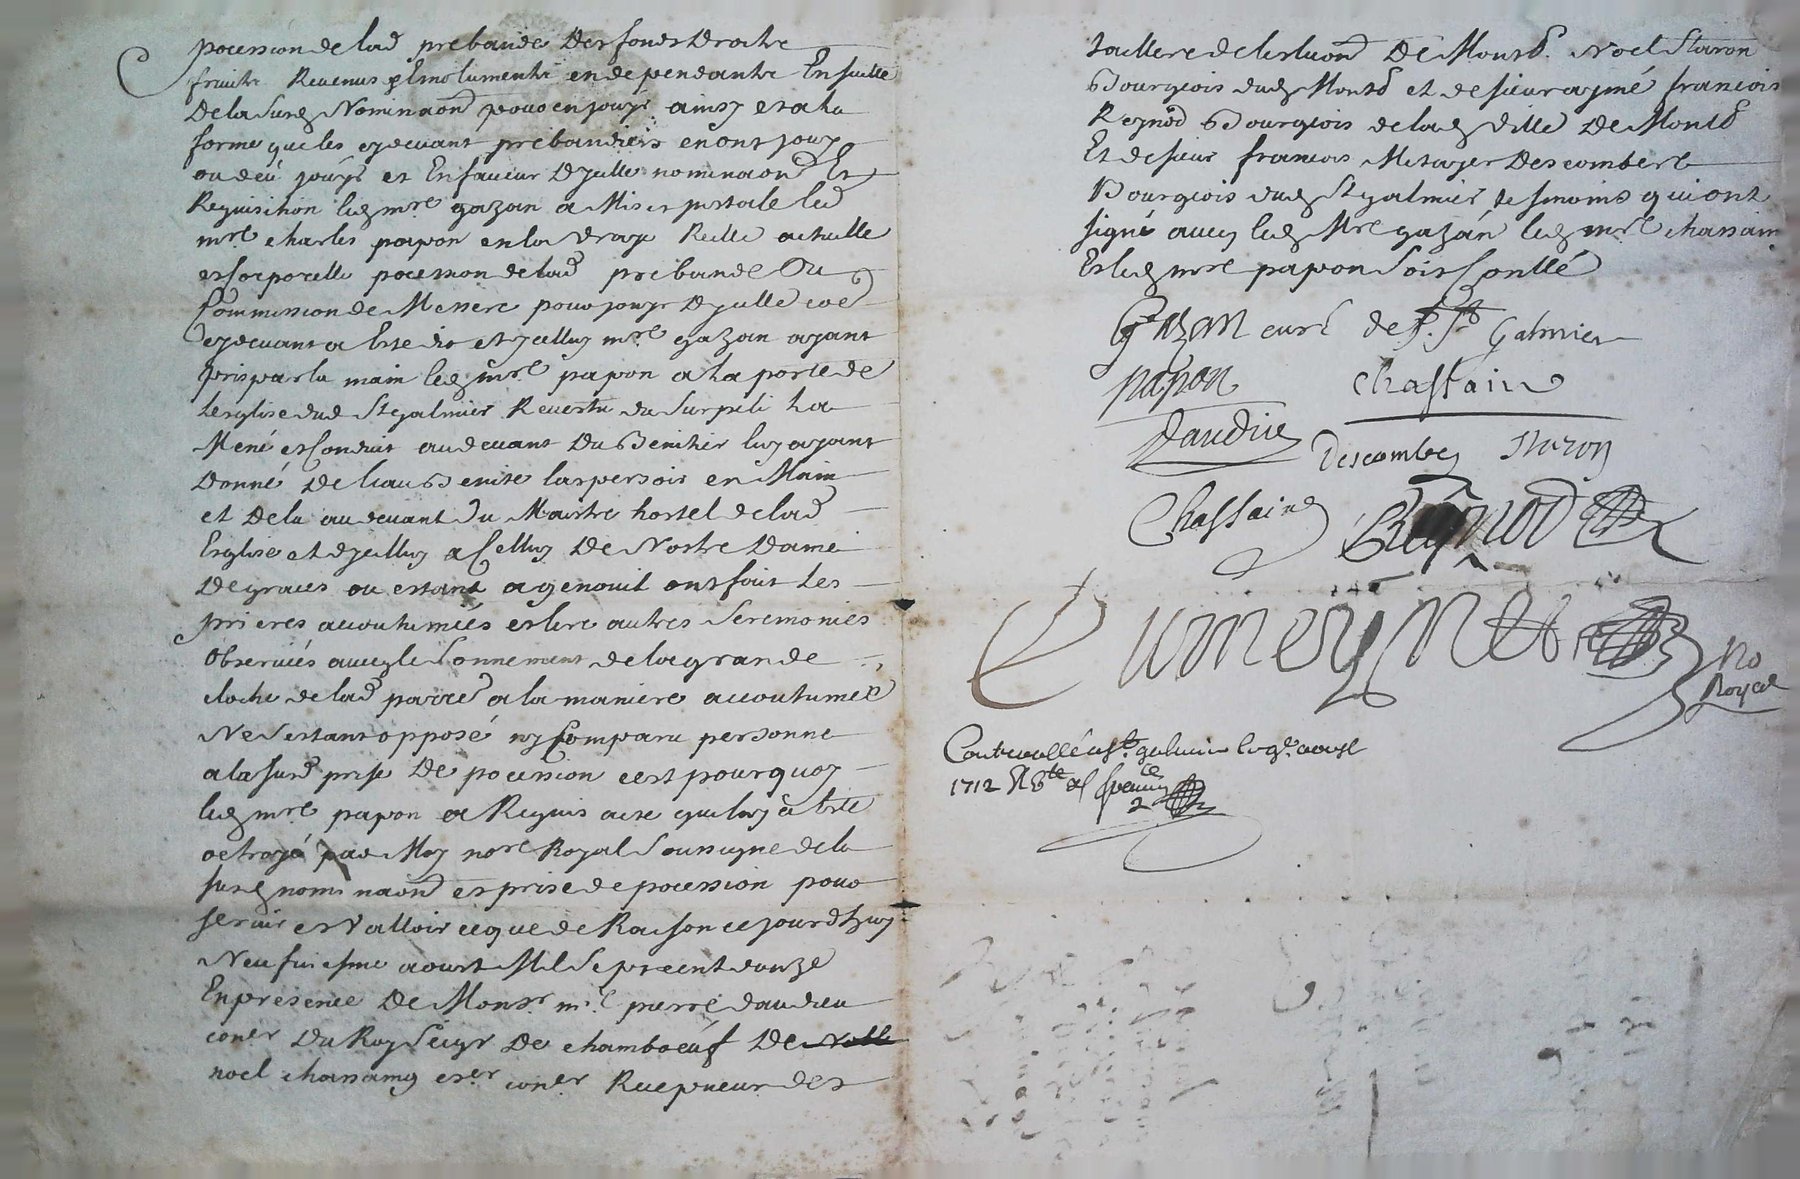 pocession de lad prebande des fonds droits
fruits Revenus et Emoluments en dependants En suitte
De la susd Nominaon pour en jouyr ainsy et a la
forme que les cydevant prebandiers en ont jouy
ou deu jouyr et En faveur Dycelle nominaon Et
Requisition led mre gazan a Mis et instale led
mre charles papon en la vraye Reelle actuelle
et corporelle pocession de lad prebande Ou
Commission de Messes pour jouyr Dycelle co
cydevant a este dit et jcelluy mre gazan ayant
pris par la main led mre papon a la porte de
lesglise dud St galmier Revestu du Surpeli La
Mené et Conduit au devant Du Benitier luy ayant
Donné De leau Benite laspersoir en Main
et De la au devant du Maistre hostel de lad
Esglise et dycelluy a Celluy De Nostre Dame
De graces ou estant a genouil ont fait Les
prieres accoutumées et les autres Seremonies
Observées avecq le Sonnement de la grande
cloche de lad parre a la maniere accoutumée
Ne sestant opposé ny Comparu personne
a la susd prise De pocession cest pourquoy
led mre papon a Requis acte qui luy a este
octroyé par Moy nore Royal Soussigne de la
susd nominaon et prise de pocession pour
servir et Valloir ce que de Raison ce jourdhuy
Neufviesme aoust Mil Sept cent douze
En presence De Monsr mre pierre daudieu
coner Du Roy Seigr De chamboeuf De
noel chassaing coner Recepveur des
tailles de leslection De Montb. Noel Staron
Bourgeois dud Montb et de sieur aymé francois
Reynod Bourgeois de lad ville De Montb
Et de sieur francois Metayer Descombes
Bourgeois dud St galmier tesmoins qui ont
signé avecq led Mre gazan led mre chassain
Et led mre papon Soit Contllé
Gazan curé de St Galmier
papon Chassain
Daudieu Descombes Staron
Chassaing Reynod
No
Royal
Contrerollé a St galmier le 9e aoust
1712